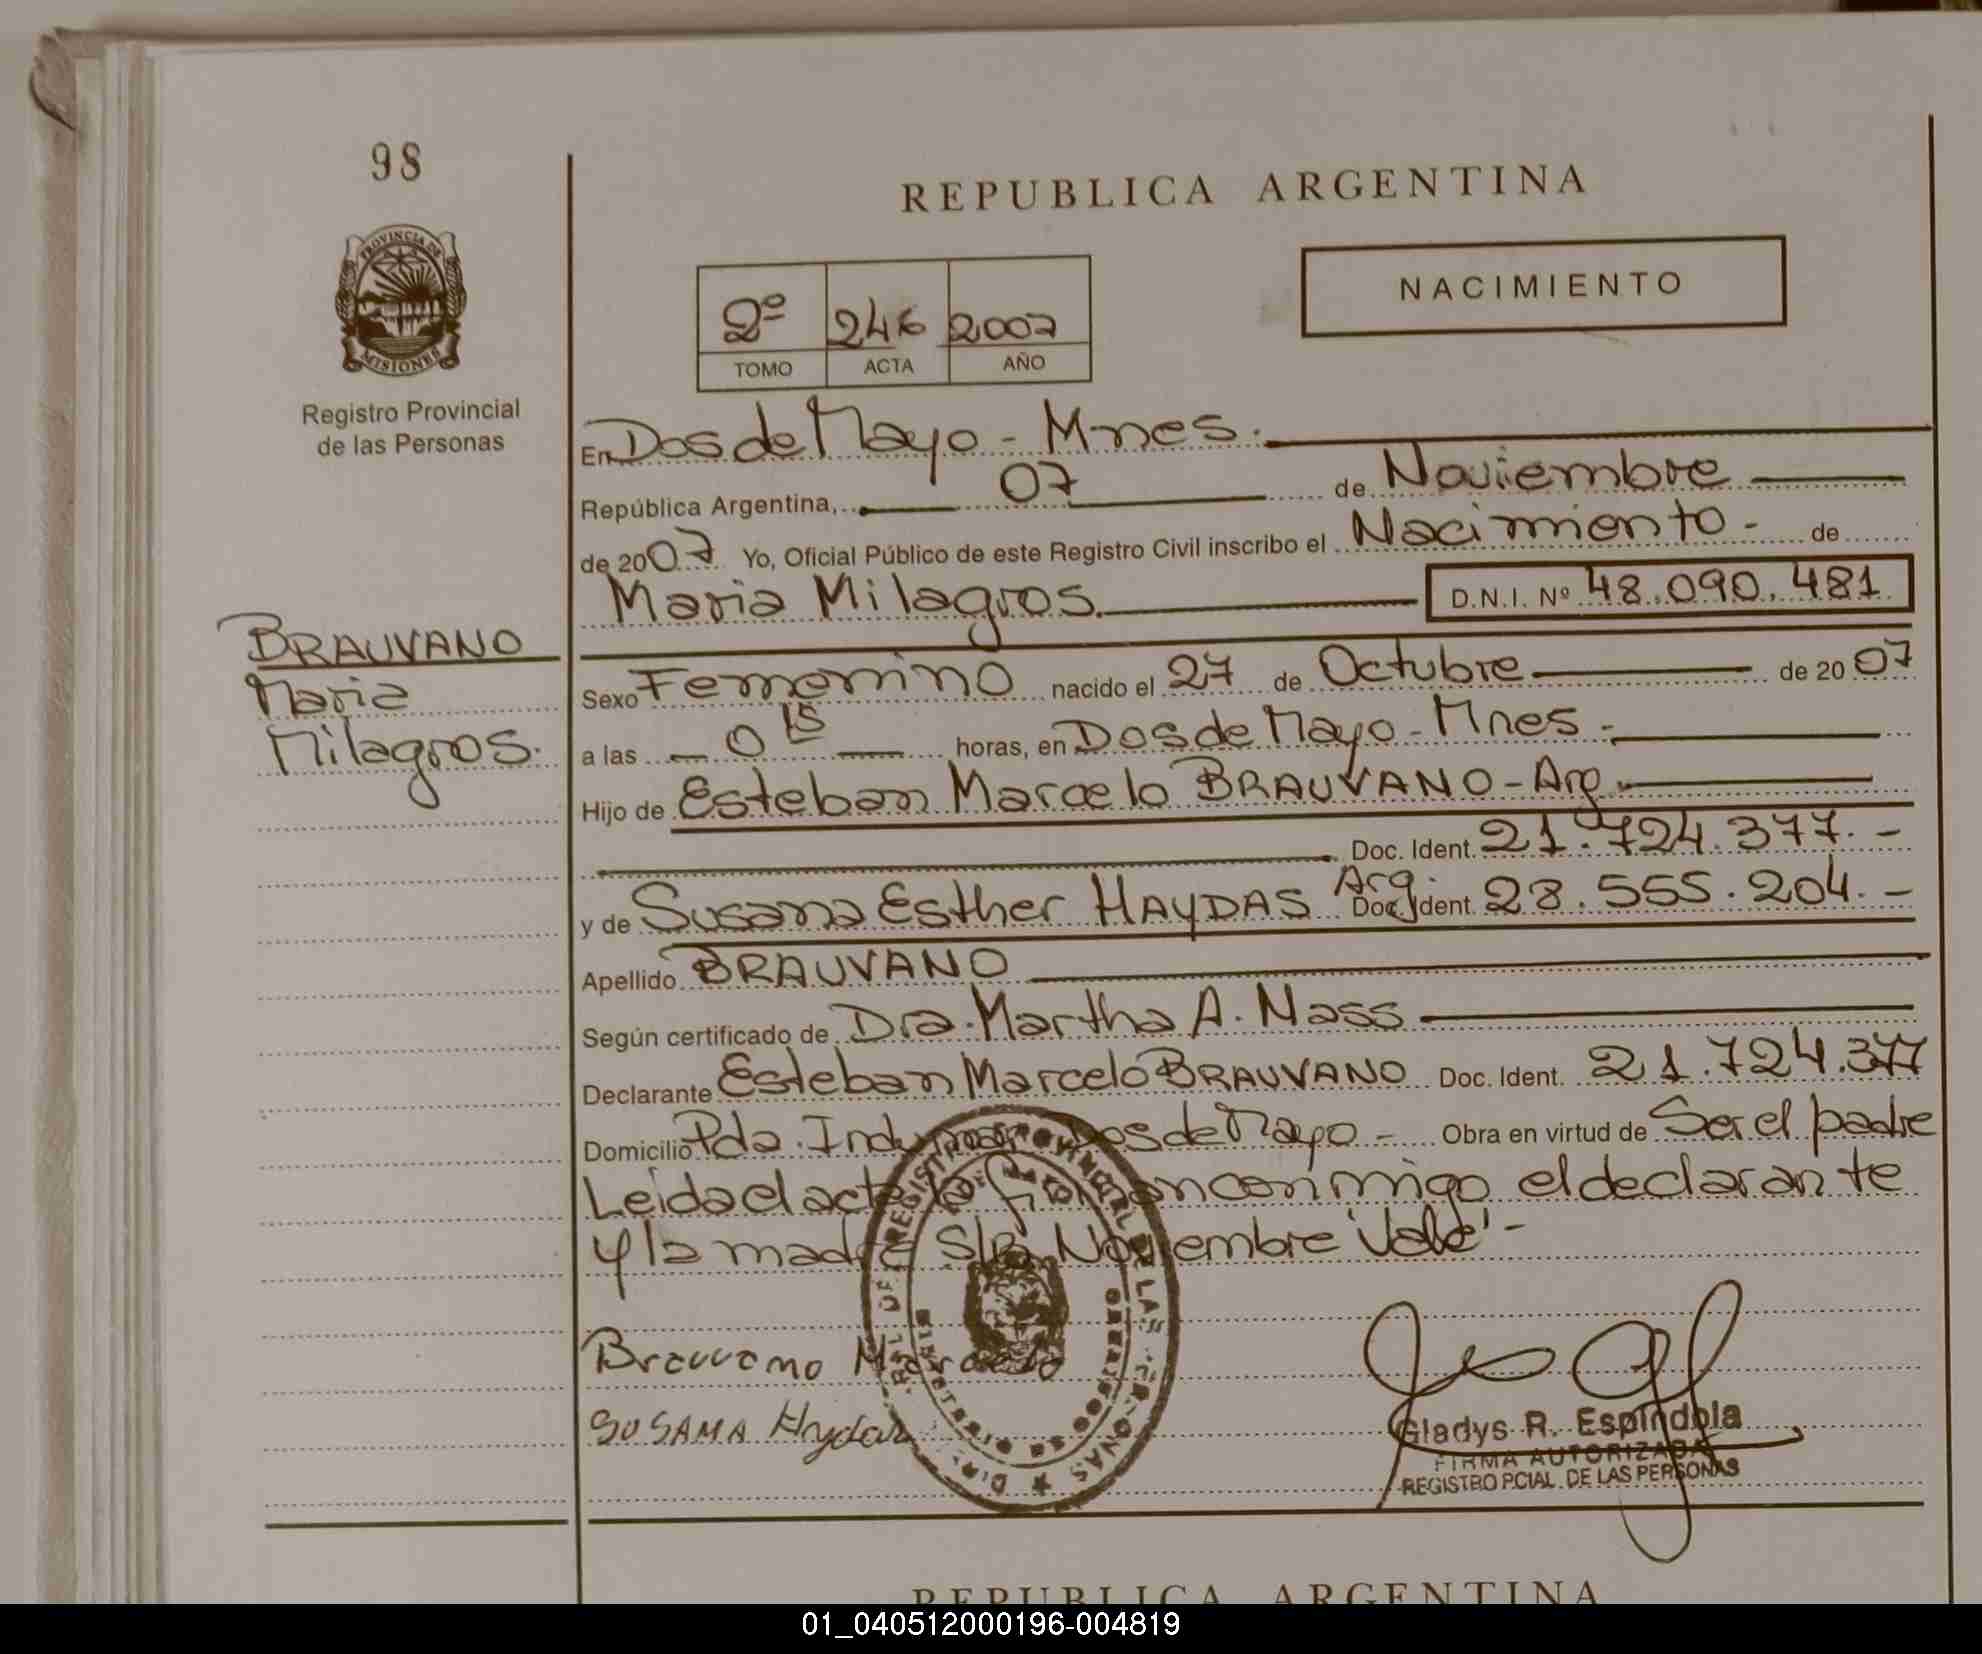 98
REPUBLICA ARGENTINA
PROVINCIA DE
MISIONES
Registro Provincial
de las Personas
NACIMIENTO
2º 246 2007
TOMO ACTA AÑO
En Dos de Mayo - Mnes.
República Argentina, 07 de Noviembre
de 2007 Yo, Oficial Público de este Registro Civil inscribo el Nacimiento - de
Maria Milagros. D.N.I. Nº 48.090.481
BRAUVANO
Maria
Milagros.
Sexo Femenino nacido el 27 de Octubre de 2007
a las 0 15 horas, en Dos de Mayo - Mnes.
Hijo de Esteban Marcelo BRAUVANO - Arg.
Doc. Ident. 21.724.377.-
y de Susana Esther HAYDAS Arg. Doc. Ident. 28.555.204.-
Apellido BRAUVANO
Según certificado de Dra. Martha A. Nass
Declarante Esteban Marcelo BRAUVANO Doc. Ident. 21.724.377
Domicilio Pda. Dos de Mayo - Obra en virtud de Ser el padre
Leida el acta la firman conmigo el declarante
y la madre S/B Noviembre "Vale" -
Brauvano Marcelo
SUSANA Haydas
Gladys R. Espindola
FIRMA AUTORIZADA
REGISTRO PCIAL. DE LAS PERSONAS
REPUBLICA ARGENTINA
01_040512000196-004819